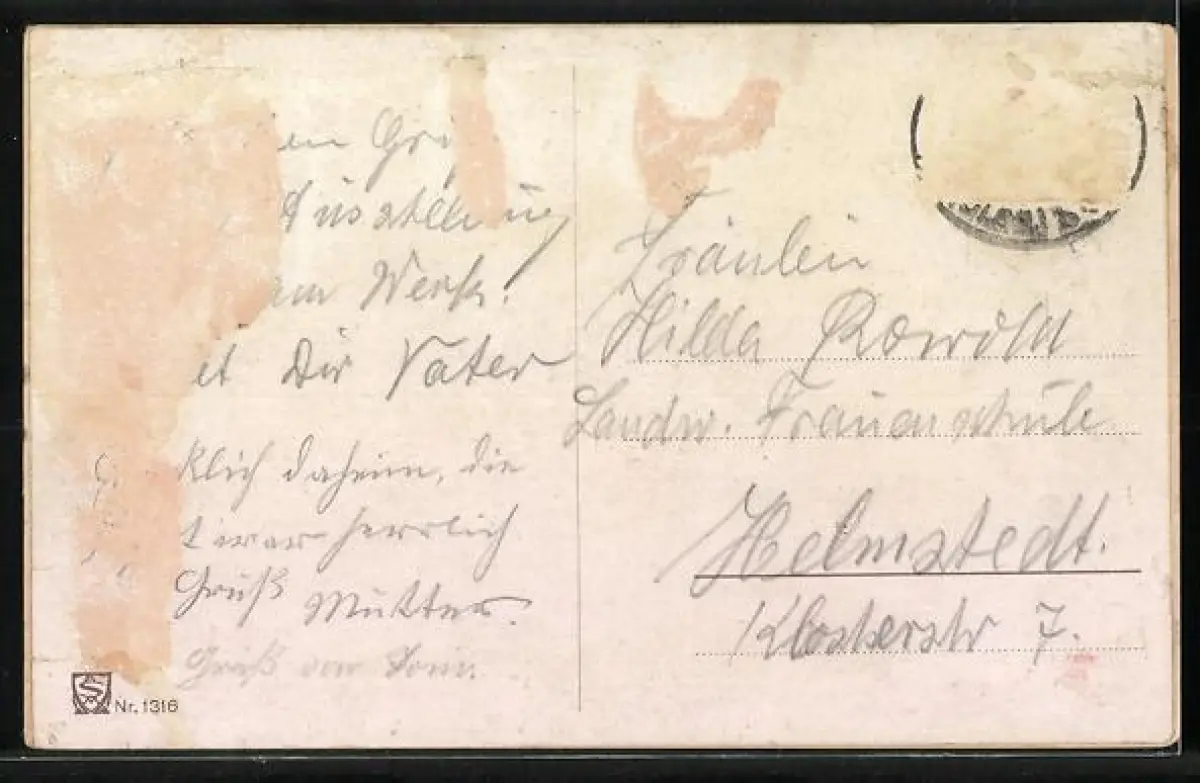 en Gr
Ausstellung
am Werk.
et Dir Vater
klich daheim, die
t war herrlich
Gruß Mutter.
Gruß von
Nr. 1316
Fräulein
Hilda
Landw. Frauenschule
Helmstedt.
Klosterstr 7.